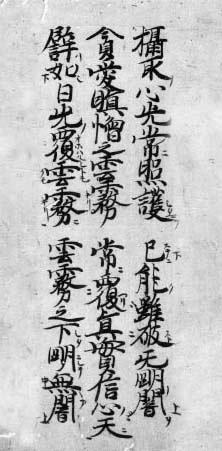 攝取心光常照護 已能雖破无明闇
貪愛瞋憎之雲霧 常覆眞實信心天
譬如日光覆雲霧 雲霧之下明無闇